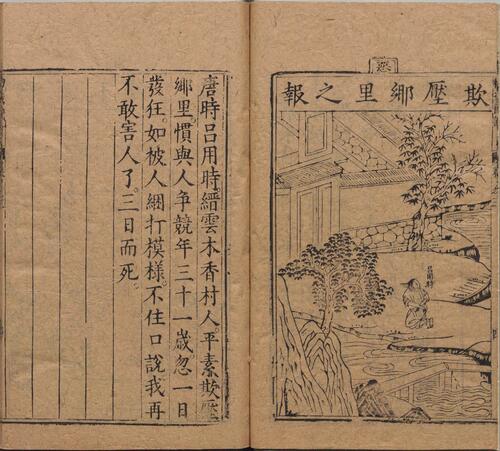 欺壓鄉里之報
呂用時
唐時呂用時。縉雲木香村人。平素欺壓
鄉里。慣與人爭競。年三十一歲。忽一日
發狂。如被人綑打模樣。不住口說我再
不敢害人了。三日而死。